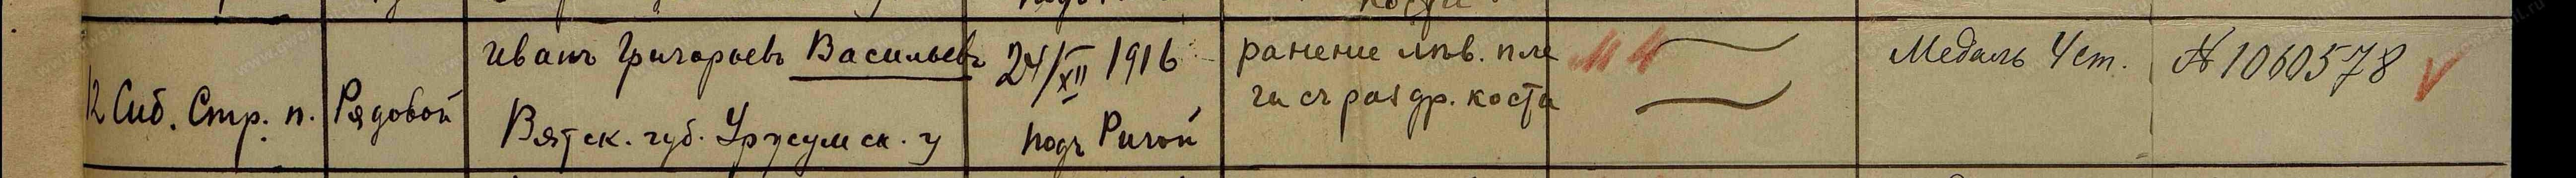 12 Сиб. Стр. п.
Рядовой
Иванъ Григорьевъ Васильевъ
Вятск. губ. Уржумск. у
24/XII 1916
подъ Ригой
ранение лѣв. пле
ча съ раздр. кости
Медаль 4 ст.
№ 1060578